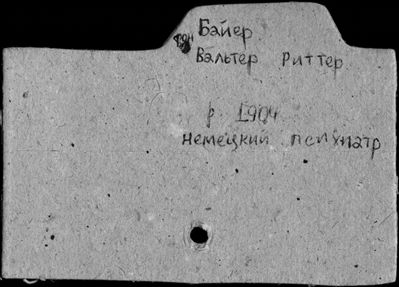 Байер
Вальтер Риттер
р 1904
немецкий психиатр